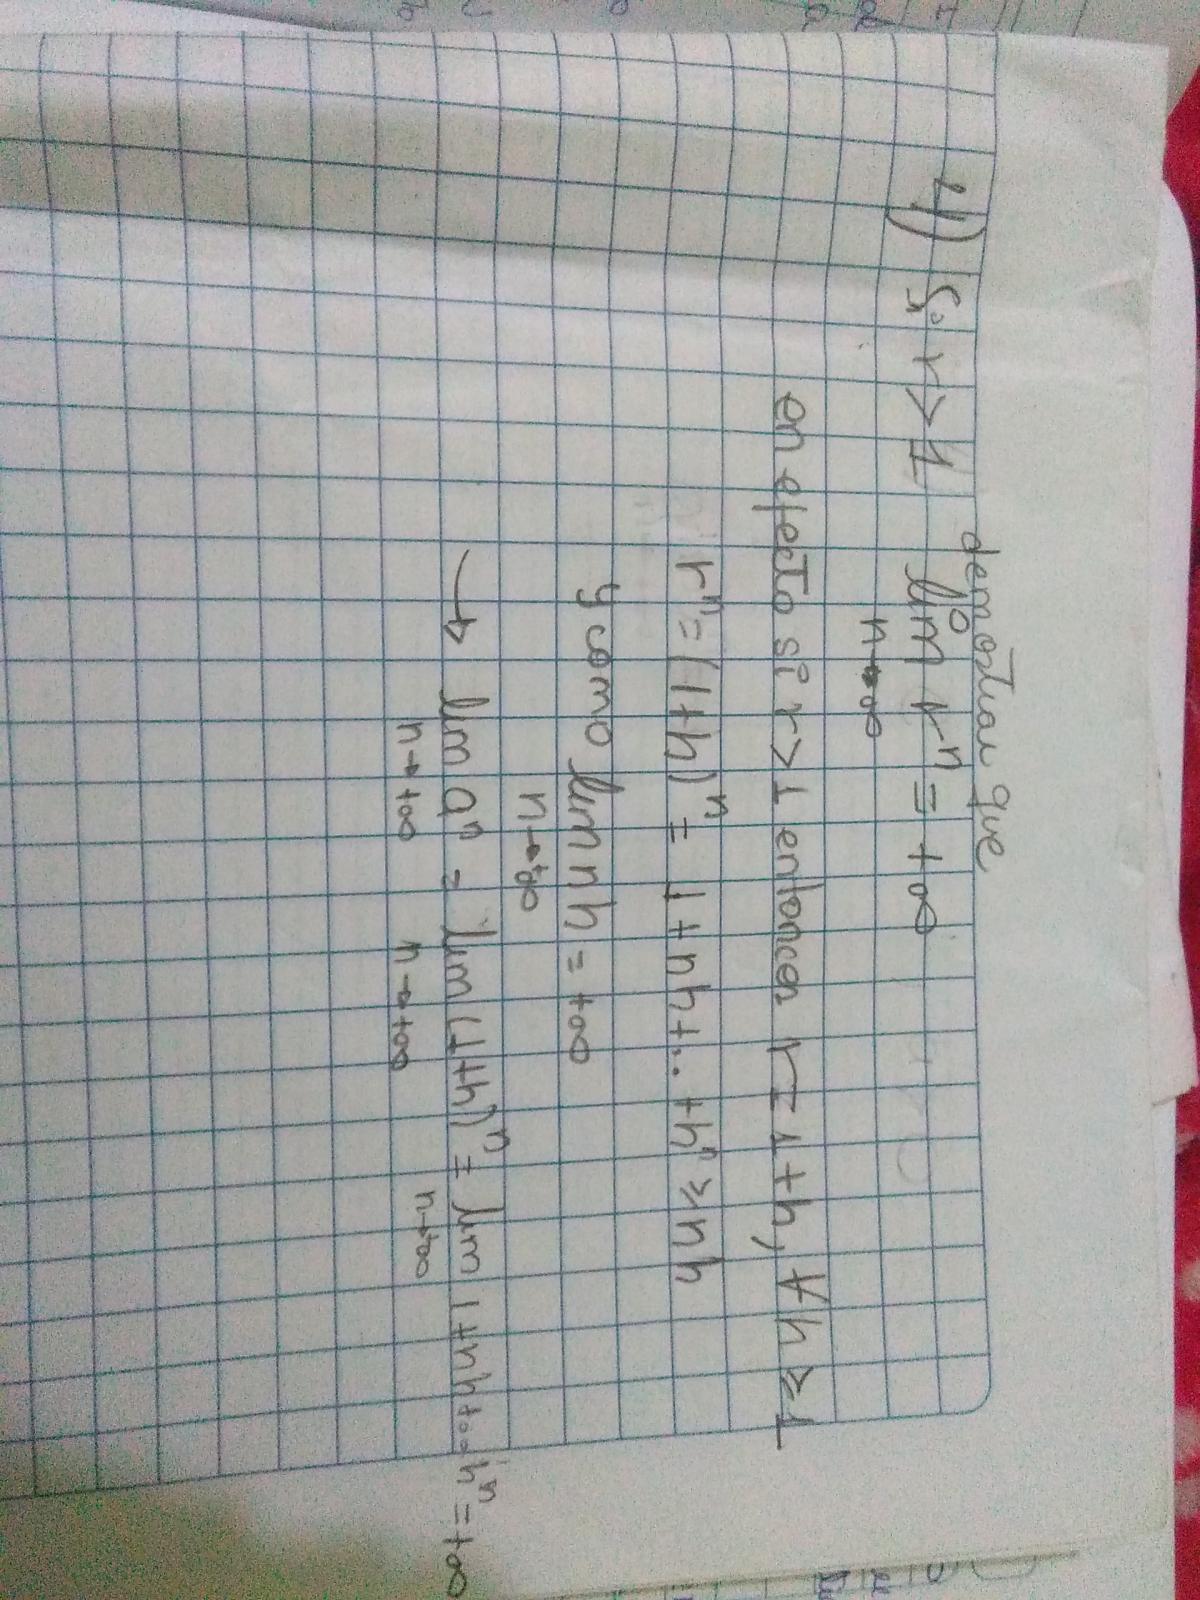 demostrar que
4) Si r>1 lim rⁿ = +∞
n→∞
en efecto si r>1 entonces r=1+h, ∀h≥1
rⁿ=(1+h)ⁿ = 1+nh+.. +hⁿ≥nh
y como lim nh = +∞
n→+∞
→ lim aⁿ = lim(1+h)ⁿ = lim 1+nh+...hⁿ=+∞
n→+∞ n→+∞ n→+∞